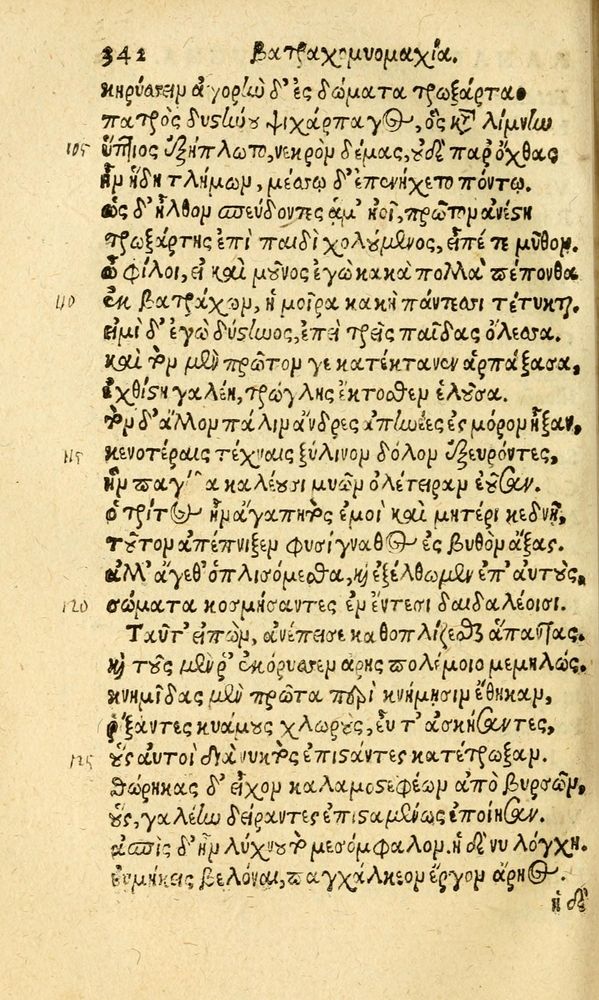 342 Βατραχομυομαχία.
κηρύσσειν ἀγορὴν δ' ἐς δώματα τρωξάρταο
πατρὸς δυστήνου ψιχάρπαγος, ὃς κατὰ λίμνην
105 ὕπτιος ἐξήπλωτο, νεκρὸν δέμας, οὐδὲ παρ' ὄχθας
ἦν ἤδη τλήμων, μέσσῳ δ' ἐπενήχετο πόντῳ.
ὡς δ' ἦλθον σπεύδοντες ἅμ' ἠοῖ, πρῶτον ἀνέστη
τρωξάρτης ἐπὶ παιδὶ χολούμενος, εἶπέ τε μῦθον.
ὦ φίλοι, εἰ καὶ μοῦνος ἐγὼ κακὰ πολλὰ πέπονθα
110 ἐκ βατράχων, ἡ μοῖρα κακὴ πάντεσσι τέτυκται.
εἰμὶ δ' ἐγὼ δύστηνος, ἐπεὶ τρεῖς παῖδας ὄλεσσα.
καὶ τὸν μὲν πρῶτόν γε κατέκτανεν ἁρπάξασα,
ἐχθίστη γαλέη, τρώγλης ἔκτοσθεν ἑλοῦσα.
τὸν δ' ἄλλον πάλιν ἄνδρες ἀπηνέες ἐς μόρον ἦξαν,
115 κενοτέραις τέχναις ξύλινον δόλον ἐξευρόντες,
ἣν παγίδα καλέουσι μυῶν ὀλέτειραν ἐοῦσαν.
ὁ τρίτος ἦν ἀγαπητὸς ἐμοὶ καὶ μητέρι κεδνῇ,
τοῦτον ἀπέπνιξεν φυσίγναθος ἐς βυθὸν ἄξας.
ἀλλ' ἄγεθ' ὁπλισόμεσθα, καὶ ἐξέλθωμεν ἐπ' αὐτούς,
120 σώματα κοσμήσαντες ἐν ἔντεσι δαιδαλέοισι.
Ταῦτ' εἰπὼν, ἀνέπεισε καθοπλίζεσθαι ἅπαντας.
καὶ τοὺς μέν ῥ' ἐκόρυσσεν ἄρης πολέμοιο μεμηλώς.
κνημῖδας μὲν πρῶτα περὶ κνήμησιν ἔθηκαν,
ῥήξαντες κυάμους χλωρούς, εὖ τ' ἀσκήσαντες,
125 οὓς αὐτοὶ διὰ νυκτὸς ἐπιστάντες κατέτρωξαν.
θώρηκας δ' εἶχον καλαμοστεφέων ἀπὸ βυρσῶν,
οὓς, γαλέην δείραντες ἐπισταμένως ἐποίησαν.
ἀσπὶς δ' ἦν λύχνου τὸ μεσόμφαλον. ἡ δέ νυ λόγχη.
εὐμήκεις βελόναι, παγχάλκεον ἔργον ἄρηος.
ἡ δὲ